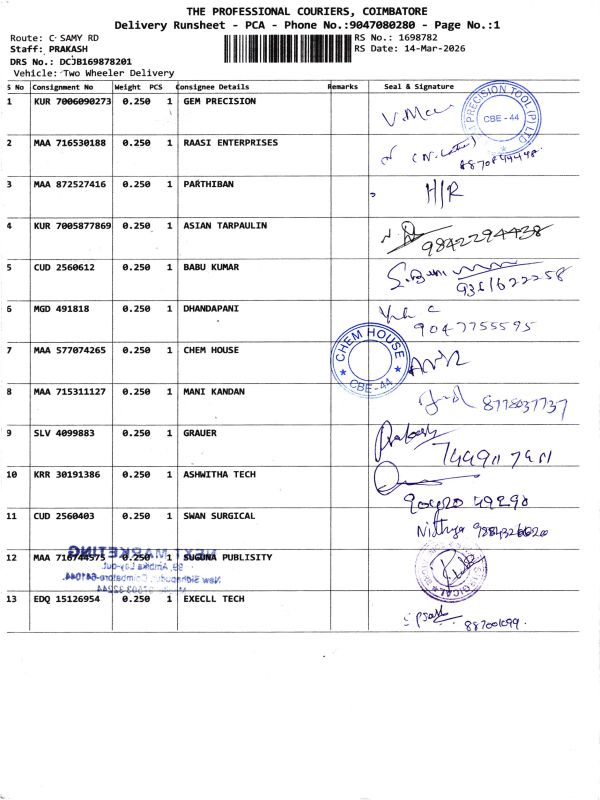 THE PROFESSIONAL COURIERS, COIMBATORE
Delivery Runsheet - PCA - Phone No.:9047080280 - Page No.:1
Route: C SAMY RD
RS No.: 1698782
Staff: PRAKASH
RS Date: 14-Mar-2026
DRS No.: DCJB169878201
Vehicle: Two Wheeler Delivery
S No Consignment No Weight PCS Consignee Details Remarks Seal & Signature
1 KUR 7006090273 0.250 1 GEM PRECISION
PRECISION TOOL (P) LTD CBE - 44
2 MAA 716530188 0.250 1 RAASI ENTERPRISES
3 MAA 872527416 0.250 1 PARTHIBAN H/R
4 KUR 7005877869 0.250 1 ASIAN TARPAULIN 9842294438
5 CUD 2560612 0.250 1 BABU KUMAR 9361622258
6 MGD 491818 0.250 1 DHANDAPANI 9047755595
7 MAA 577074265 0.250 1 CHEM HOUSE
CHEM HOUSE CBE - 44
8 MAA 715311127 0.250 1 MANI KANDAN 8778037737
9 SLV 4099883 0.250 1 GRAUER Prakash
10 KRR 30191386 0.250 1 ASHWITHA TECH
11 CUD 2560403 0.250 1 SWAN SURGICAL Nithya
12 MAA 716744575 0.250 1 SUGUNA PUBLISITY
NEXT MARKETING
99, Ambika Lay-out,
Coimbatore-641044.
13 EDQ 15126954 0.250 1 EXECLL TECH